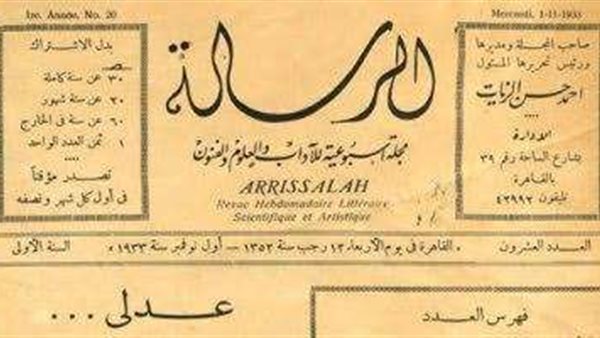 1re. Année, No. 20
Mercredi, 1-11-1933
بدل الاشتراك
٣٠ عن سنة كاملة
٢٠ عن ستة شهور
٦٠ عن سنة في الخارج
١ ثمن العدد الواحد
تصدر مؤقتاً
في أول كل شهر ونصفه
الرسالة
مجلة أسبوعية للآداب والعلوم والفنون
ARRISSALAH
Revue Hebdomadaire Littéraire
Scientifique et Artistique
صاحب المجلة ومديرها
ورئيس تحريرها المسئول
احمد حسن الزيات
الادارة
بشارع الساحة رقم ٣٩
بالقاهرة
تليفون ٤٢٩٩٢
العدد العشرون
« القاهرة في يوم الأربعاء ١٣ رجب سنة ١٣٥٢ — أول نوفمبر سنة ١٩٣٣ »
السنة الأولى
فهرس العدد
عدلى ...